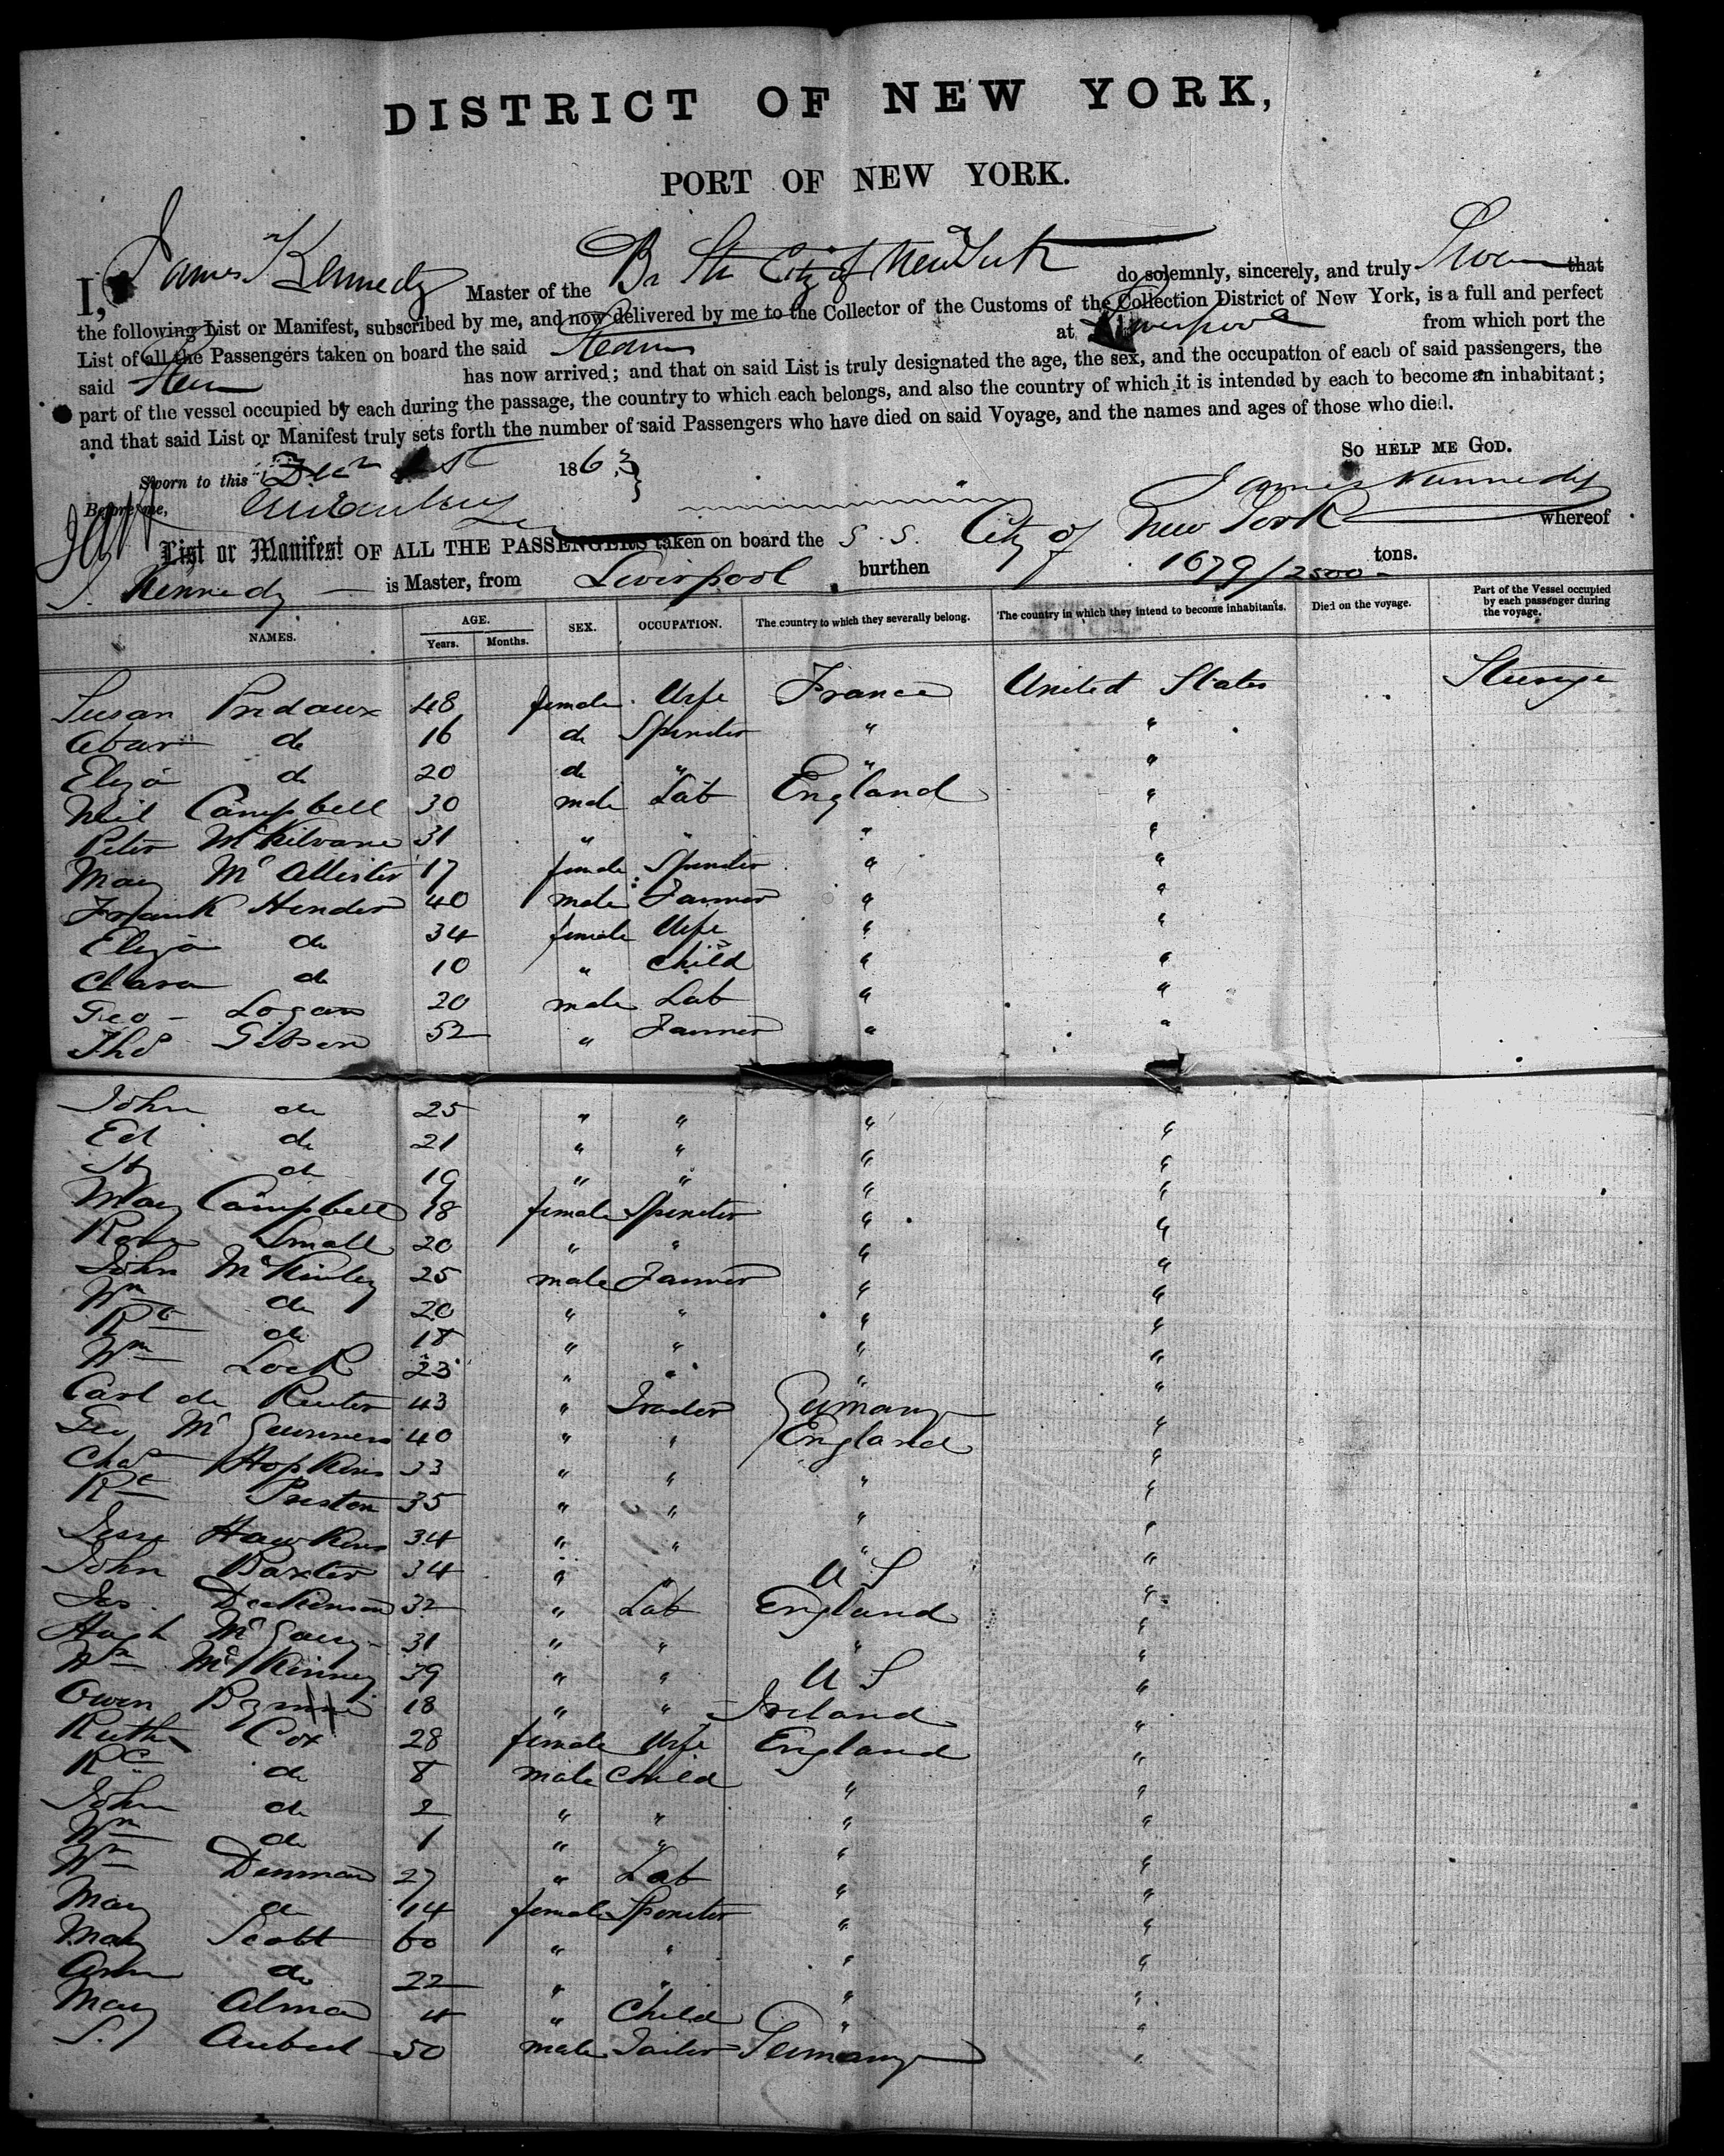 DISTRICT OF NEW YORK,
PORT OF NEW YORK.
I, James Kennedy Master of the Br Str City of New York do solemnly, sincerely, and truly Swear that
the following List or Manifest, subscribed by me, and now delivered by me to the Collector of the Customs of the Collection District of New York, is a full and perfect
List of all the Passengers taken on board the said Steam at Liverpool from which port the
said Steam has now arrived; and that on said List is truly designated the age, the sex, and the occupation of each of said passengers, the
part of the vessel occupied by each during the passage, the country to which each belongs, and also the country of which it is intended by each to become an inhabitant;
and that said List or Manifest truly sets forth the number of said Passengers who have died on said Voyage, and the names and ages of those who died.
So HELP ME GOD.
Sworn to this Decr 1st 1863
Before me, James Kennedy
List or Manifest OF ALL THE PASSENGERS taken on board the S.S. City of New York whereof
J. Kennedy is Master, from Liverpool burthen 1679/2500 tons.
NAMES. AGE. Years. Months. SEX. OCCUPATION. The country to which they severally belong. The country in which they intend to become inhabitants. Died on the voyage. Part of the Vessel occupied by each passenger during the voyage.
Susan Pridaux 48 female Wife France United States Steerage
do 16 do Spinster " "
Eliza do 20 do " " "
Neil Campbell 30 male Lab England "
Peter McKilvane 31 " " " "
Mary McAllister 17 female Spinster " "
Frank Hender 40 male Farmer " "
Eliza do 34 female Wife " "
Clara do 10 " Child " "
Geo Logan 20 male Lab " "
Thos Gibson 52 " Farmer " "
John do 25 " " " "
Ed do 21 " " " "
Hy do 19 " " " "
Mary Campbell 18 female Spinster " "
Rose Small 20 " " " "
John McKinley 25 male Farmer " "
Wm do 20 " " " "
Rt do 18 " " " "
Wm Lock 23 " " " "
Carl de Reuter 43 " Trader Germany "
Geo Mc 40 " " England "
Chas Hopkins 33 " " " "
Rt Preston 35 " " " "
Jesse Hawkins 34 " " " "
John Baxter 34 " " U S "
Jas Dickinson 32 " Lab England "
Hugh McGary 31 " " " "
Wm McKinney 39 " " U S "
Owen Byrne 18 " " Ireland "
Ruth Cox 28 female Wife England "
Rt do 8 male Child " "
John do 2 " " " "
Wm do 1 " " " "
Wm Denman 27 " Lab " "
Mary do 14 female Spinster " "
Mary Scott 60 " " " "
Ann do 22 " " " "
Mary Alma 4 " Child " "
S. Aubert 50 male Tailor Germany "